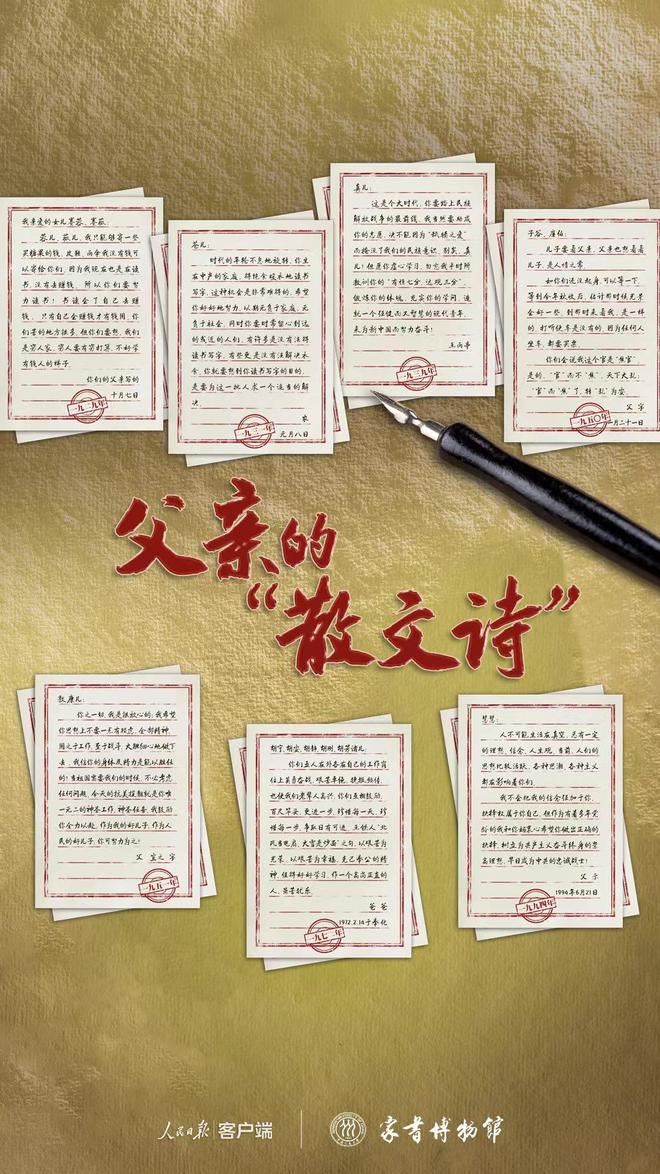 我亲爱的女儿蓉蓉、蓉薇:
蓉儿、薇儿,我只能够寄一些
买糖果的钱,皮鞋、雨伞我没有钱可
以寄给你们,因为我现在也是在读
书,没有去赚钱,所以你们要努
力读书!书读会了自己去赚
钱,只有自己会赚钱才有钱用,你
们要的地方很多,但你们要想,我们
是穷人家,穷人要有穷打算,不好学
有钱人的样子
你们的父亲写的
十月七日
一九二九年
时代的年轮不息地旋转,你生
在中产的家庭,得能全般来地读书
写字,这种机会是非常难得的,希望
你好好地努力,以期无负于家庭,无
负于社会,同时你要时常留心到远
的或近的人们,有许多是没有法得
读书写字,有些更是没有法解决衣
食,你就要想到你读书写字的目的,
是要为这一批人求一个适当的解
决
农
元月八日
一九三一年
真儿:
这是个大时代,你要踏上民族
解放战争的最前线,我当然要助成
你的志愿,决不能因为“舐犊之爱”
而掩没了我们的民族意识。别矣,真
儿!但愿你虚心学习,勿忘我平时所
教训你的“有恒七分,达观三分”,
锻炼你的体魄,充实你的学问,造
就一个强健而又智慧的现代青年,
来为新中国而努力奋斗!
王雨亭
一九三九年
子谷、彦伯:
儿子要看父亲,父亲也想看看
儿子,是人情之常。
如你们还没起身,可以等一下,
等到今年秋收后,估计那时候光景
会好一些,到那时来看我,是一样
的,打听便车是没有的,因为任何人
坐车,都要买票。
你们会说我这个官是“焦官”,
是的,“官”而不“焦”,天下大乱;
“官”而“焦”了,转“乱”为安。
父 字
二月二十一日
一九五〇年
父亲的
“散文诗”
敖康儿:
你之一切,我是很放心的;我希望
你思想上不要一点有顾虑,全部精神
用之于工作,至于战斗,大胆细心地做下
去,我信你的身体及精力是能以胜任
的!当祖国需要我们的时候,不必考虑
任何问题,今天的抗美援朝就是你唯
一无二的神圣工作、神圣任务,我鼓励
你全力以赴,作为我的好儿子,作为人
民的好儿子,你可努力为之!
父 宜之 字
一九五一年
胡宁、胡安、胡静、胡刚、胡苏诸儿:
你们五人在外各在自己的工作岗
位上英勇奋战,艰苦卓绝,捷报频传,
也使我们老辈人高兴,你们互相鼓励,
百尺竿头,更进一步,珍惜每一天,珍
惜每一步,争取日有所进,主张人“北
风当电扇,大雪是炒面”之句,以艰苦为
光荣,以艰苦为幸福,克己奉公的精
神,值得好好学习,作一个高尚正直的
人,英苦犹乐
爸爸
1972.2.14于奉化
一九七二年
慧慧:
人不可能生活在真空,总有一定
的理想、信念、人生观,当前,人们的
思想比较活跃,各种思潮、各种主义
都在影响着你们。
我不会把我的信念强加于你,
抉择权属于你自己,但作为有着多年党
龄的我和你妈衷心希望你做出正确的
抉择,树立为共产主义奋斗终身的崇
高理想,早日成为中共的忠诚战士!
父 示
1994年6月21日
一九九四年
人民日报 客户端
家书博物馆